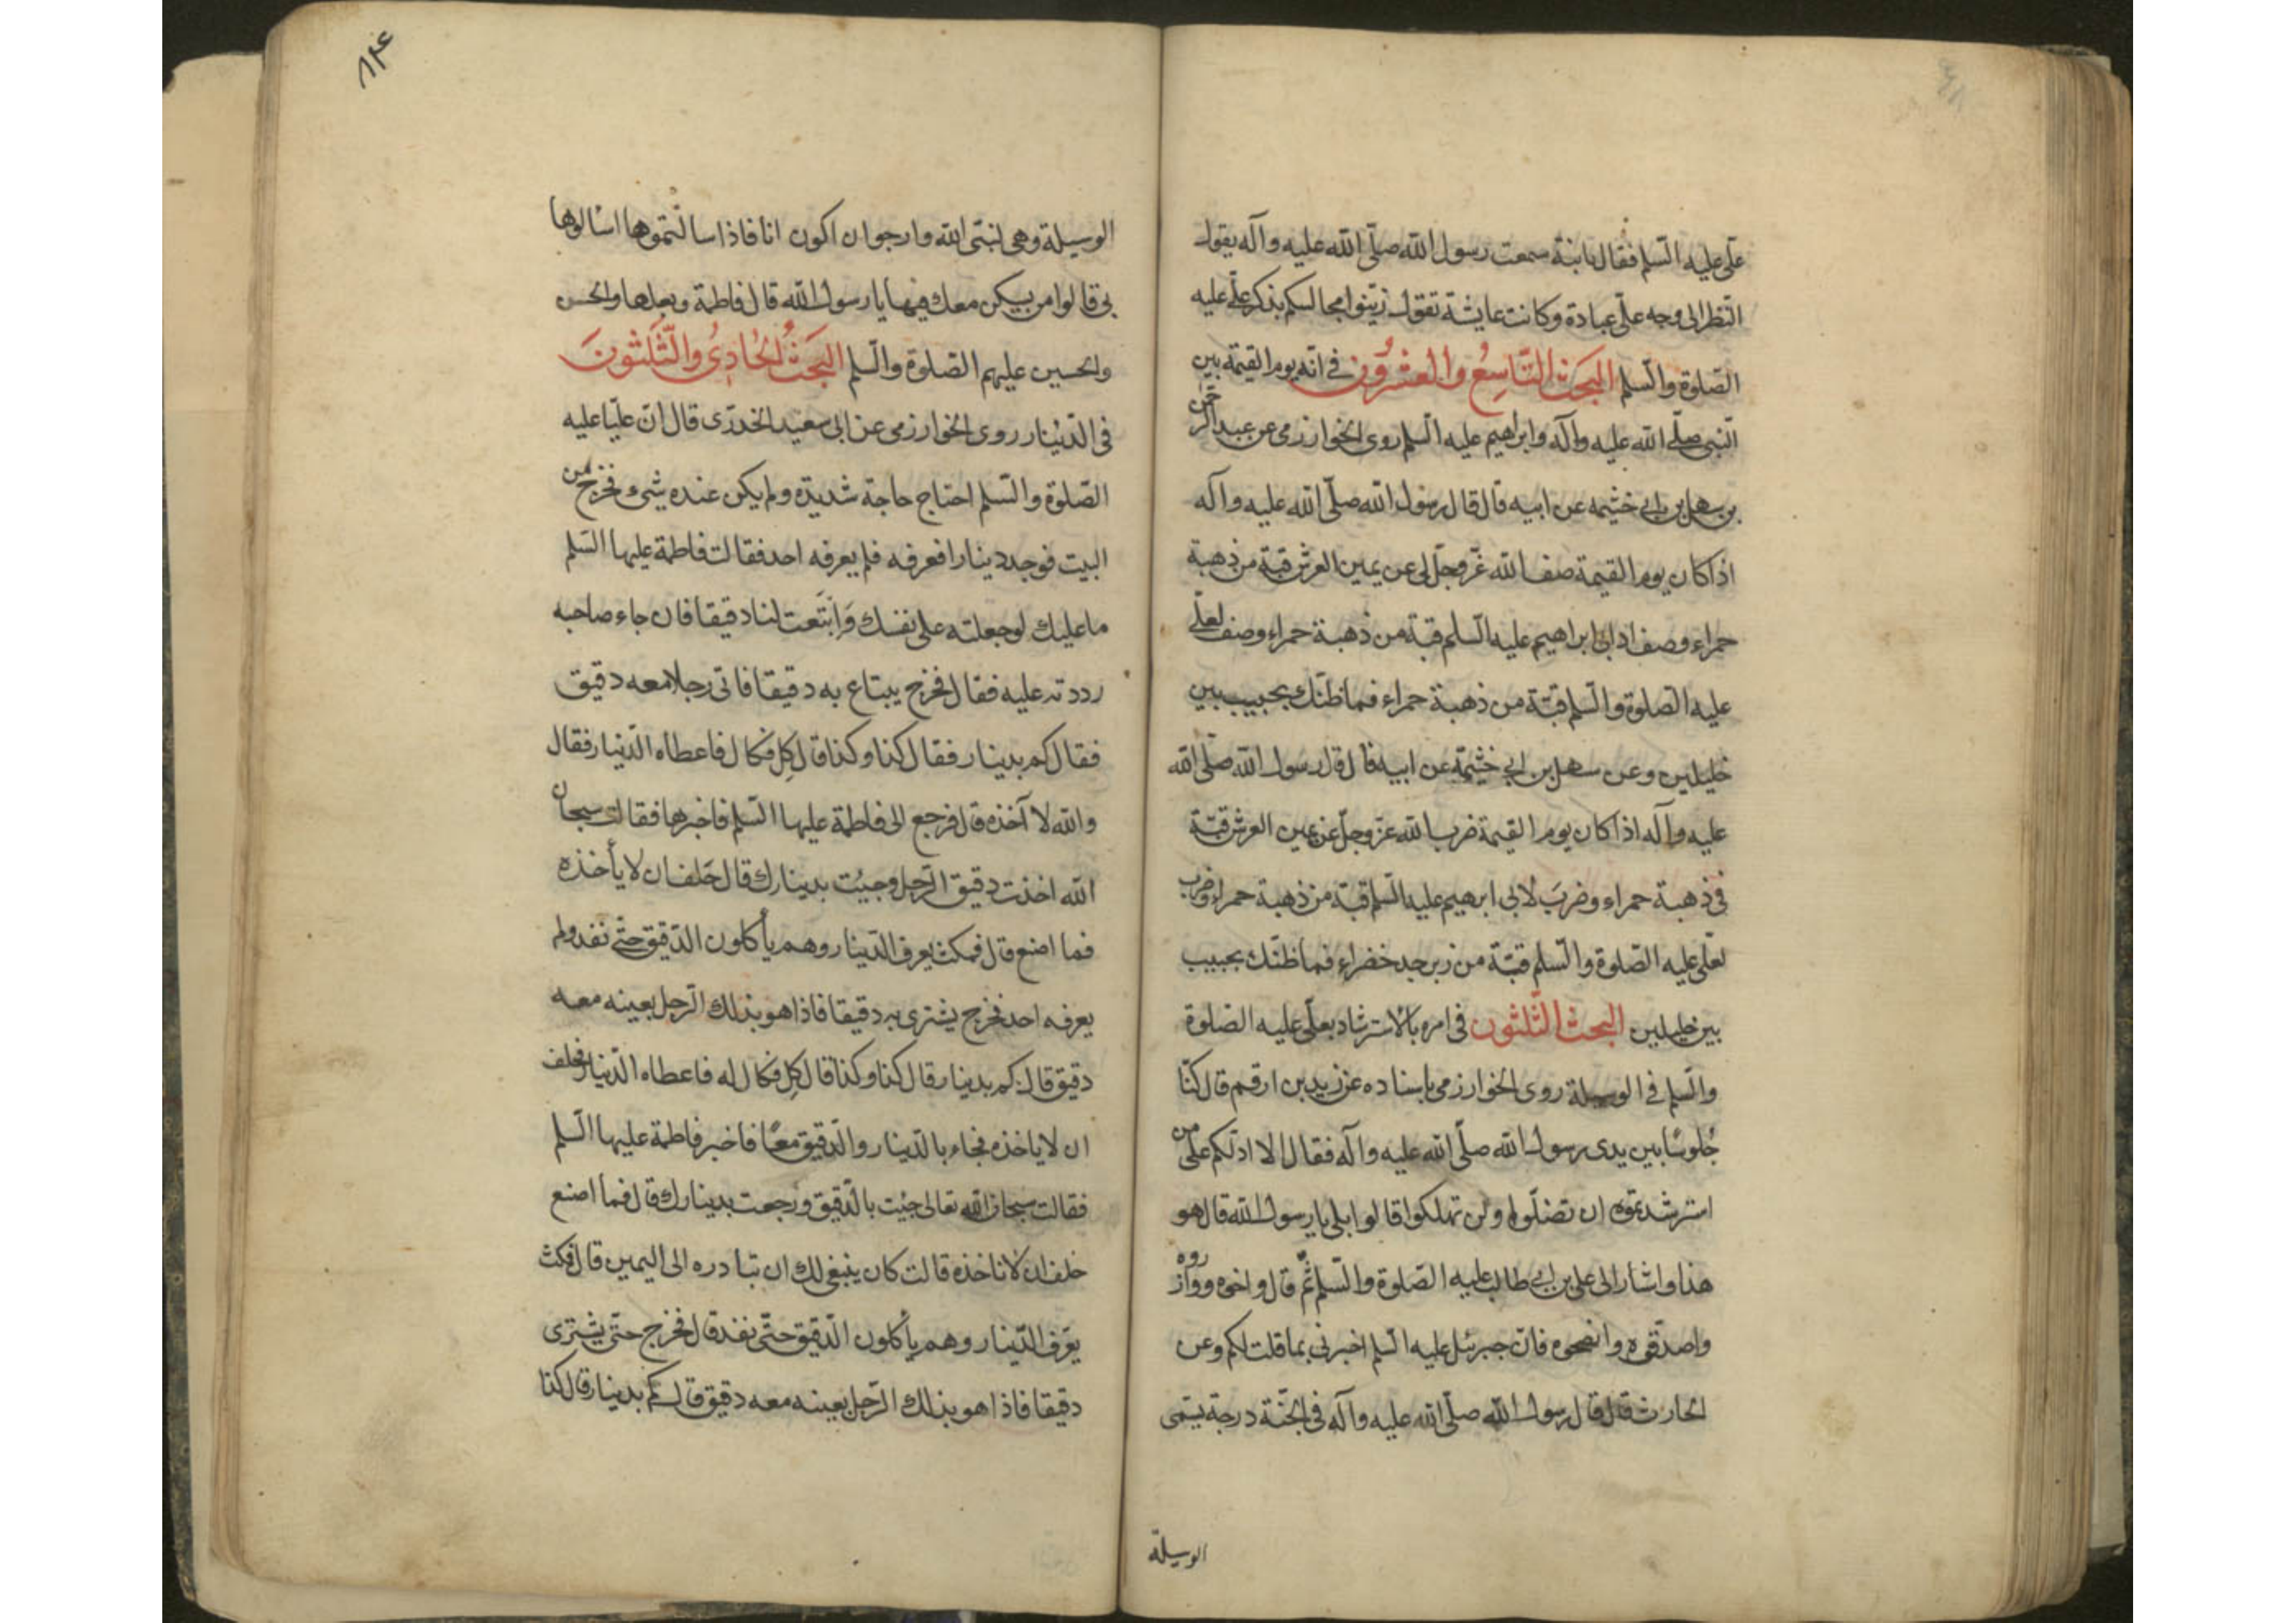 علی علیه السلم فقال یا بنیة سمعت رسول الله صلّی الله علیه وآله یقول
النّظر الی وجه علی عبادة وکانت عایشة تقول زیّنوا مجالسکم بذکر علی علیه
الصّلوة والسلم البحث التّاسع والعشرون فی انه یوم القیمة بین
النبی صلّی الله علیه وآله وابراهیم علیه السلم روی الخوارزمی عن عبد الرحمن
بن سهل بن ابی خثیمه عن ابیه قال قال رسول الله صلّی الله علیه وآله
اذا کان یوم القیمة صف الله عزّ وجلّ لی عن یمین العرش قبّة من ذهبة
حمراء وصف لابی ابراهیم علیه السلم قبة من ذهبة حمراء وصف لعلی
علیه الصلوة والسلم قبّة من ذهبة حمراء فما ظنّک بحبیب بین
خلیلین وعن سهل بن ابی خثیمة عن ابیه قال قال رسول الله صلّی الله
علیه وآله اذا کان یوم القیمة ضرب الله عزّ وجلّ عن یمین العرش قبّة
فی ذهبة حمراء وضربَ لابی ابرهیم علیه السلم قبة من ذهبة حمراء وضرب
لعلی علیه الصّلوة والسّلم قبّة من زبرجد خضراء فما ظنّک بحبیب
بین خلیلین البحث الثّلثون فی امره بالاسترشاد بعلی علیه الصلوة
والسلم فی الوسیلة روی الخوارزمی باسناده عن زید بن ارقم قال کنّا
جُلوسًا بین یدی رسول الله صلّی الله علیه وآله فقال الا ادلّکم علی من
استرشدتموه ان تضلّوا ولن تهلکوا قالوا بلی یا رسول الله قال هو
هذا واشار الی علی بن ابی طالب علیه الصلوة والسلم ثُمّ قال واخوه ووازروه
واصدقوه وانصحوه فانّ جبرئیل علیه السلم اخبرنی بما قلت لکم وعن
الحارث قال قال رسول الله صلّی الله علیه وآله فی الجنّة درجة یسمی
الوسیلة
۸۴
الوسیلة وهی لنبی الله وارجوا ن اکون انا فاذا سالتموها اسالوها
لی قالوا من یسکن معک فیها یا رسول الله قال فاطمة وبعلها والحسن
والحسین علیهم الصلوة والسلم البحث الحادی والثّلثون
فی الدّینار روی الخوارزمی عن ابی سعید الخدری قال انّ علیّا علیه
الصّلوة والسّلم احتاج حاجة شدیدة ولم یکن عنده شیء فخرج من
البیت فوجد دینارا فعرفه فلم یعرفه احد فقالت فاطمة علیها السّلم
ما علیک لو جعلته علی نفسک وابتعت لنا دقیقا فان جاء صاحبه
رددته علیه فقال فخرج یبتاع به دقیقا فاتی رجلا معه دقیق
فقال کم بدینار فقال کذا وکذا قال کِل فکال فاعطاه الدّینار فقال
والله لا آخذه قال فرجع الی فاطمة علیها السّلم فاخبرها فقالت سبحان
الله اخذت دقیق الرّجل وجیئت بدینارک قال حلف ان لا یأخذه
فما اصنع قال فمکث یعرف الدّینار وهم یأکلون الدّقیق حتّی نفد ولم
یعرفه احد فخرج یشتری به دقیقا فاذا هو بذلک الرّجل بعینه معه
دقیق قال کم بدینار قال کذا وکذا قال کِل فکال له فاعطاه الدّینار فحلف
ان لا یاخذه فجاء بالدّینار والدّقیق معًا فاخبر فاطمة علیها السلم
فقالت سبحان الله تعالی جئت بالدّقیق ورجعت بدینارک قال فما اصنع
حلف ان لا یاخذه قالت کان ینبغی لک ان تبادره الی الیمین قال فمکث
یعرف الدّینار وهم یأکلون الدّقیق حتّی نفد قال فخرج حتّی یشتری
دقیقا فاذا هو بذلک الرّجل بعینه معه دقیق قال کم بدینار قال کذا